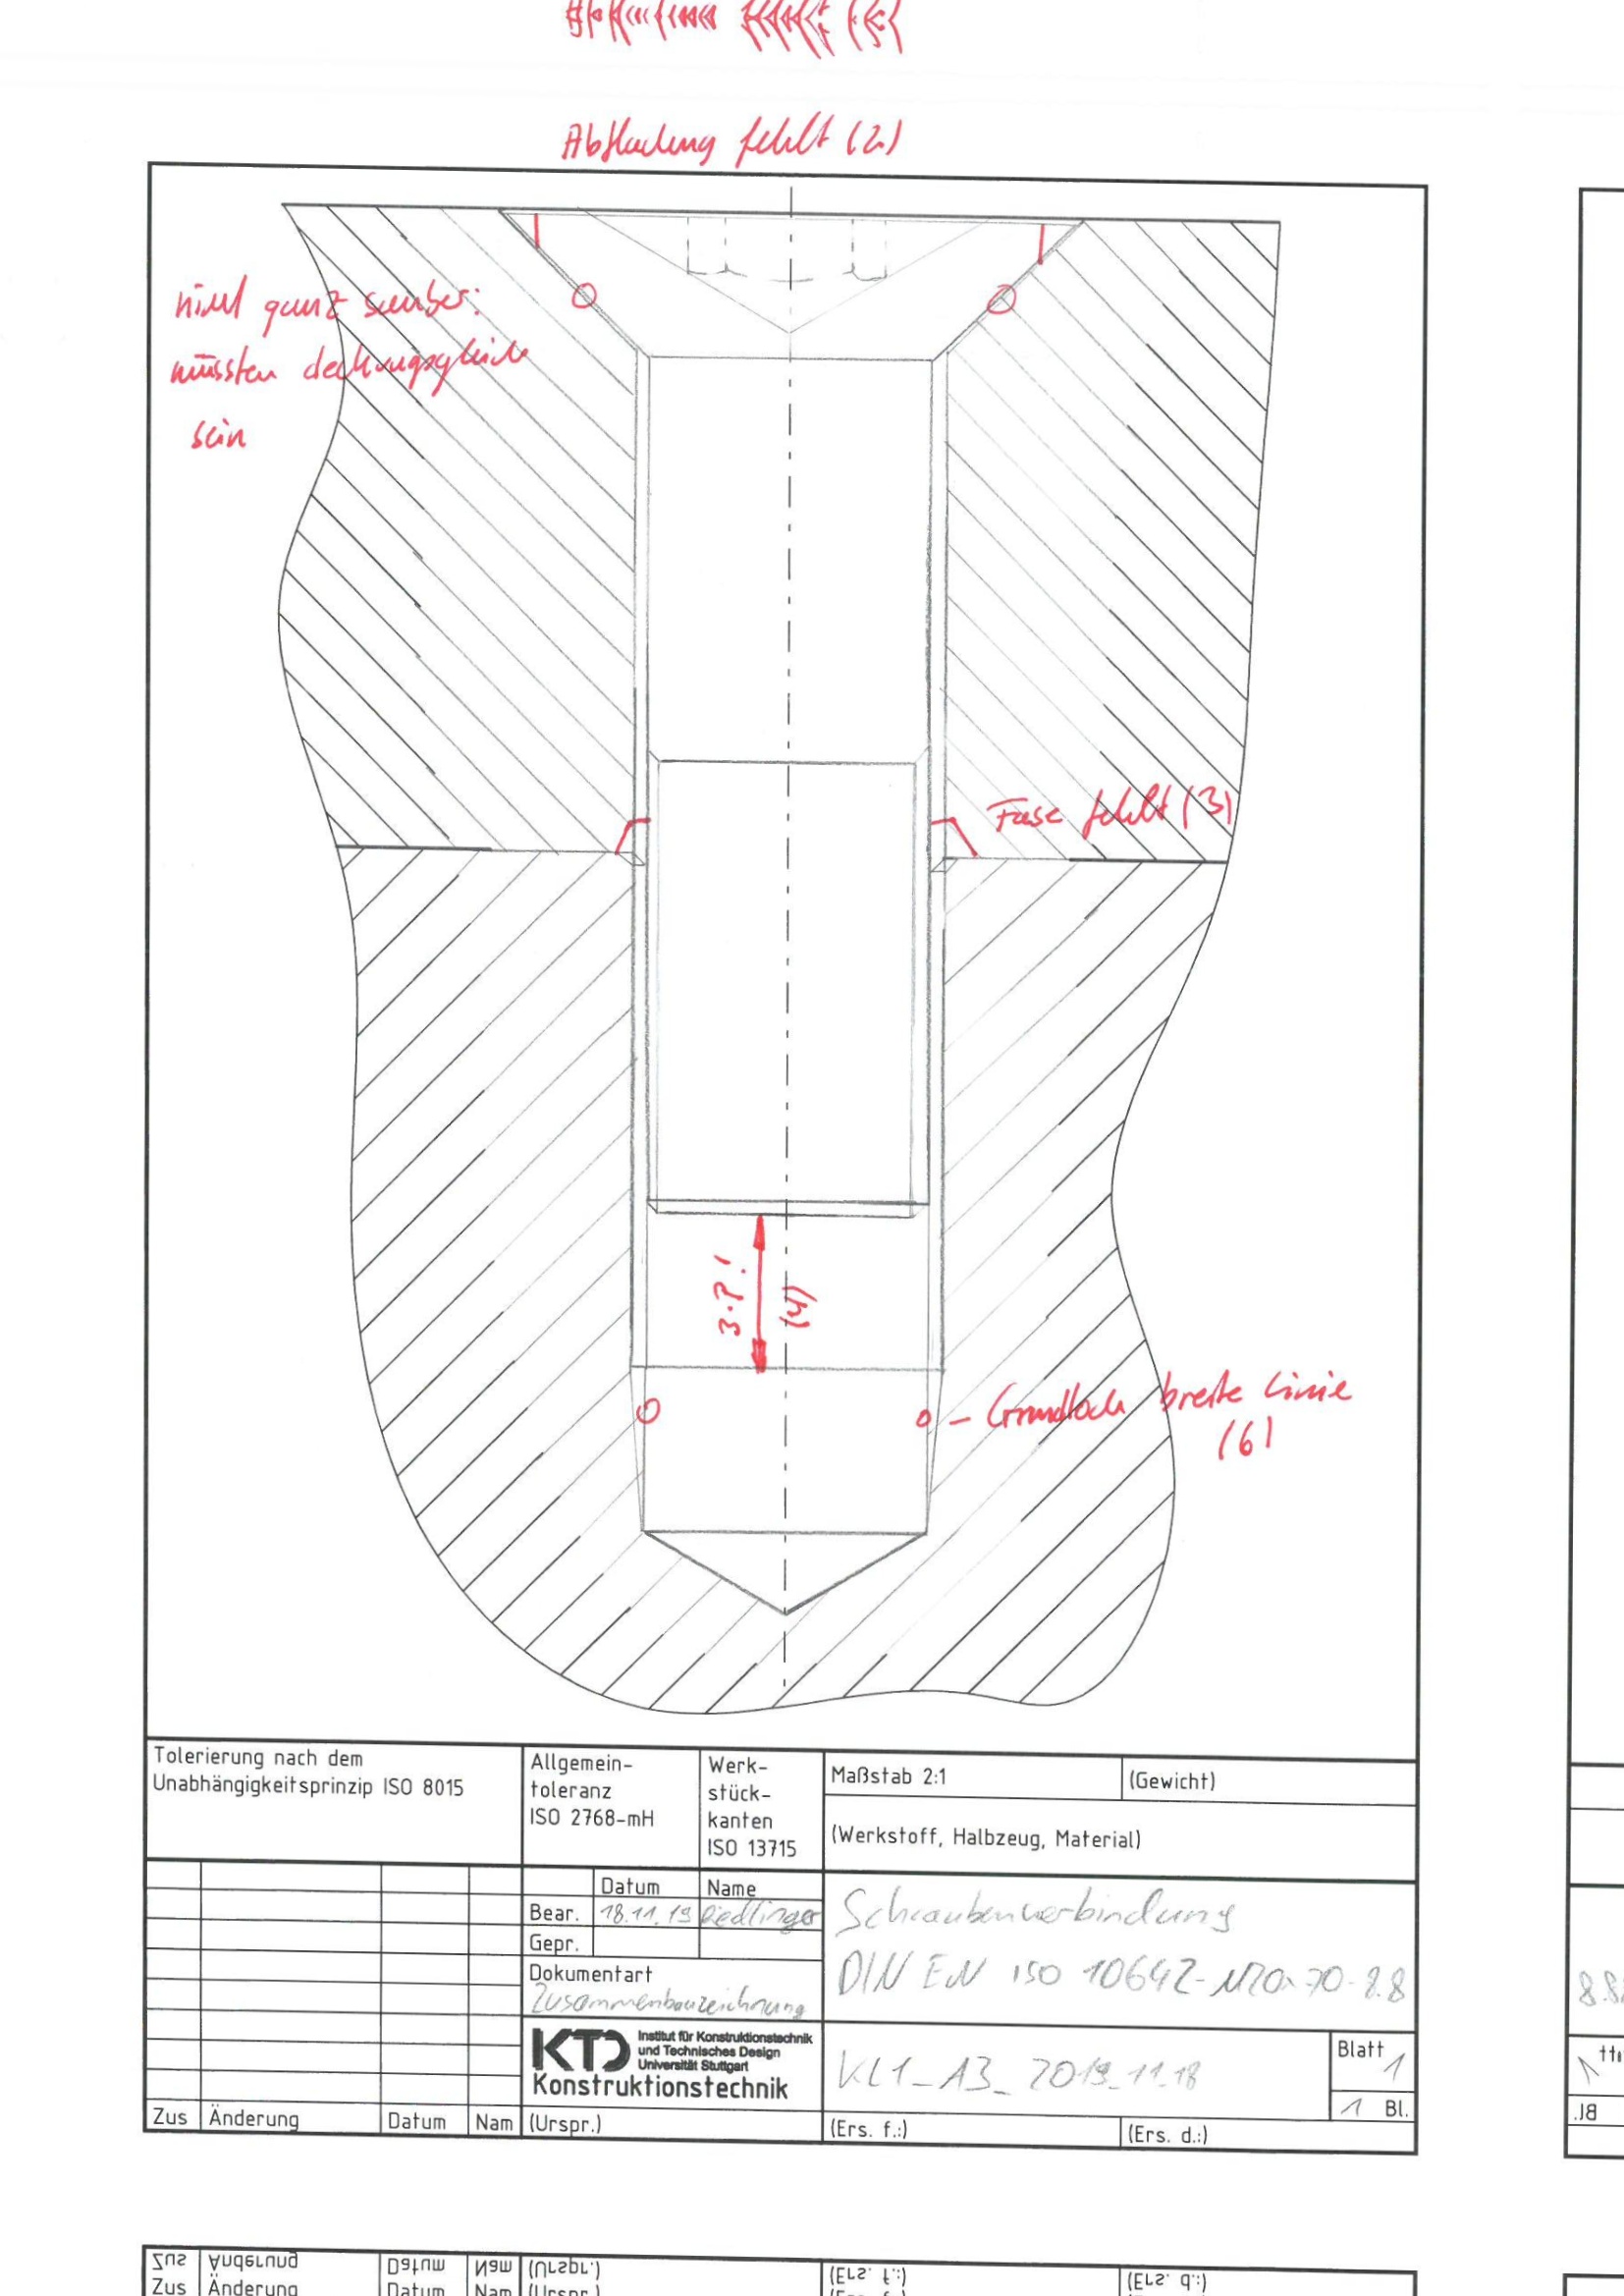 Abflachung fehlt (2)
nicht ganz sauber:
müssten deckungsgleich
sein
Fase fehlt (3)
3·P!
(4)
- Grundloch breite Linie
(6)
Tolerierung nach dem
Unabhängigkeitsprinzip ISO 8015
Allgemein-
toleranz
ISO 2768-mH
Werk-
stück-
kanten
ISO 13715
Maßstab 2:1
(Gewicht)
(Werkstoff, Halbzeug, Material)
Datum
Name
Bear.
18.11.19
Riedlinger
Gepr.
Dokumentart
Zusammenbauzeichnung
Schraubenverbindung
DIN EN ISO 10642-M20x70-8.8
KTD
Institut für Konstruktionstechnik
und Technisches Design
Universität Stuttgart
Konstruktionstechnik
KL1_A3_2019_11_18
Blatt
1
1 Bl.
Zus
Änderung
Datum
Nam
(Urspr.)
(Ers. f.:)
(Ers. d.:)
Zus
Änderung
Datum
Nam
(Urspr.)
(Ers. f.:)
(Ers. d.:)